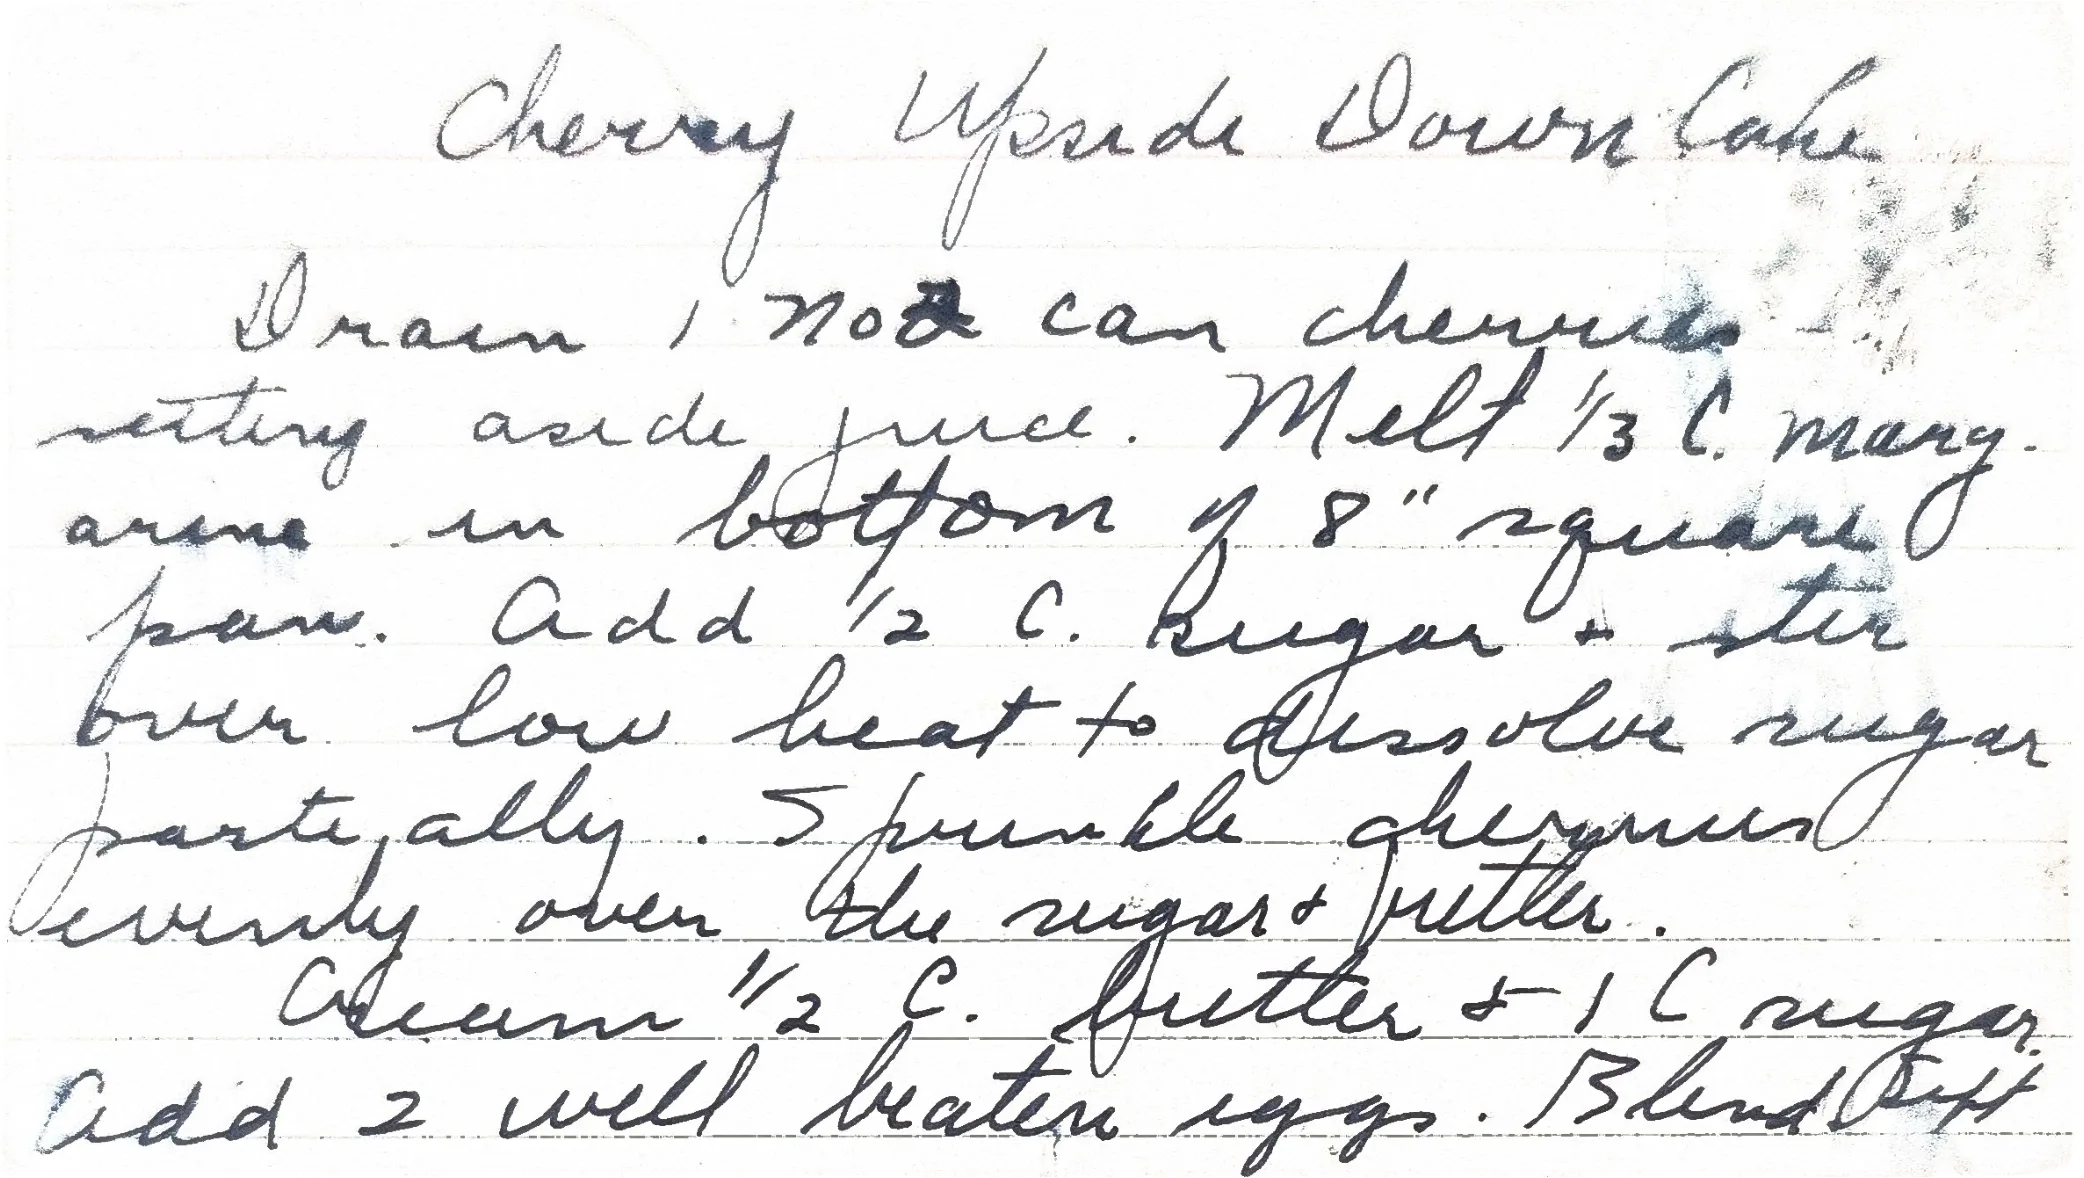 Cherry Upside Down Cake
Drain 1 No 2 can cherries
setting aside juice. Melt 1/3 C. marg-
arine in bottom of 8" square
pan. Add 1/2 C. sugar & stir
over low heat to dissolve sugar
partially. Sprinkle cherries
evenly over the sugar & butter.
Cream 1/2 C. butter & 1 C sugar.
Add 2 well beaten eggs. Blend Sift